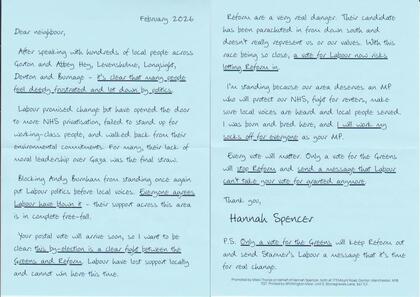 February 2026
Dear neighbour,
After speaking with hundreds of local people across
Gorton and Abbey Hey, Levenshulme, Longsight,
Denton and Burnage - it's clear that many people
feel deeply frustrated and let down by politics.
Labour promised change but have opened the door
to more NHS privatisation, failed to stand up for
working-class people, and walked back from their
environmental commitments. For many, their lack of
moral leadership over Gaza was the final straw.
Blocking Andy Burnham from standing once again
put Labour politics before local voices. Everyone agrees
Labour have blown it - their support across this
area is in complete free-fall.
Your postal vote will arrive soon, so I want to be
clear: this by-election is a clear fight between the
Greens and Reform. Labour have lost support locally
and cannot win here this time.
Reform are a very real danger. Their candidate
has been parachuted in from down south and
doesn't really represent us or our values. With this
race being so close, a vote for Labour now risks
letting Reform in.
I'm standing because our area deserves an MP
who will protect our NHS, fight for renters, make
sure local voices are heard and local people served.
I was born and bred here, and I will work my
socks off for everyone as your MP.
Every vote will matter. Only a vote for the Greens
will stop Reform and send a message that Labour
can't take your vote for granted anymore.
Thank you,
Hannah Spencer
P.S. Only a vote for the Greens will keep Reform out
and send Starmer's Labour a message that it's time
for real change.